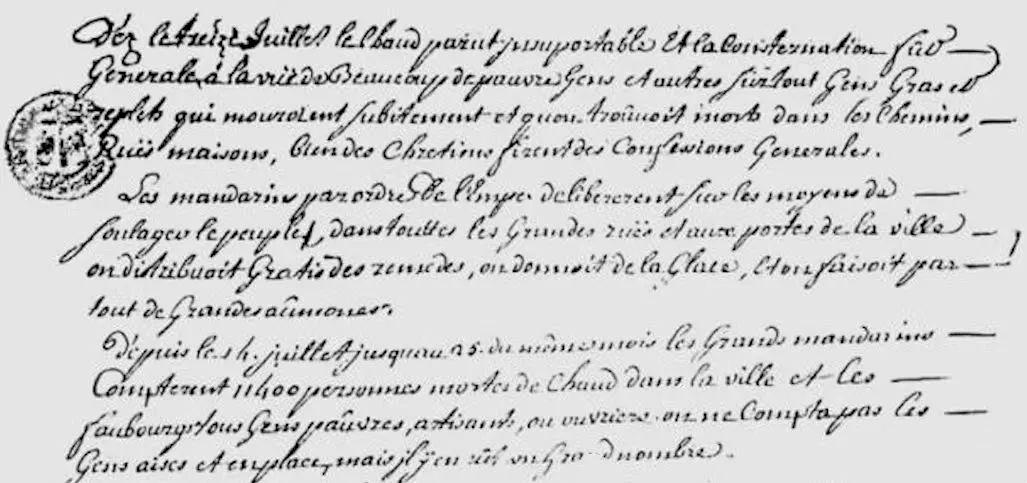 Déz le treizé Juillet le Chaud parut jnsuportable Et la Consternation fut
Generale, à la vüe de Beaucoup de pauvre Gens et autres sur tout Gens Gras et
replets qui mouroient subitement et quon trouvoit morts dans les Chemins,
Ruës maisons, bien des Chretiens firent des Confessions Generales.
Les mandarins par ordre de l'Empr. delibererent sur les moyens de
soulager le peuple, dans touttes les Grandes ruës et aux portes de la ville
on distribuoit Gratis des remedes, on donnoit de la Glace, Et on faisoit par
tout de Grandes aûmones.
Dépuis le 14. juillet jusquau 25. du même mois les Grands mandarins
Compterent 11400 personnes mortes de Chaud dans la ville et les
faubourgs tous Gens paûvres, artisants, ou ouvriers. on ne Compta pas les
Gens aises et en place, mais jl y en eût un Grand nombre.